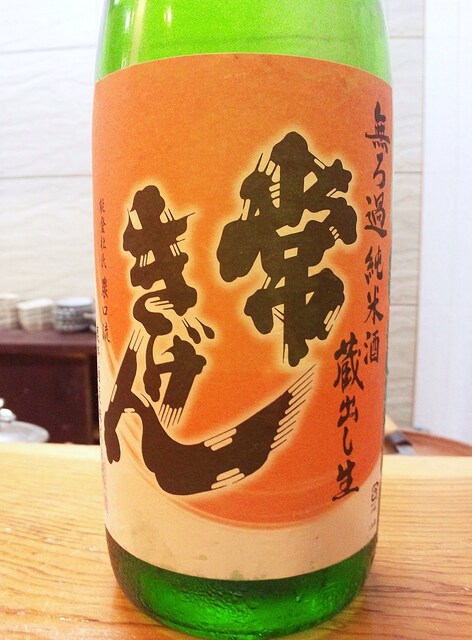 無ろ過純米酒
蔵出し生
常
きげん
能登杜氏 農口流